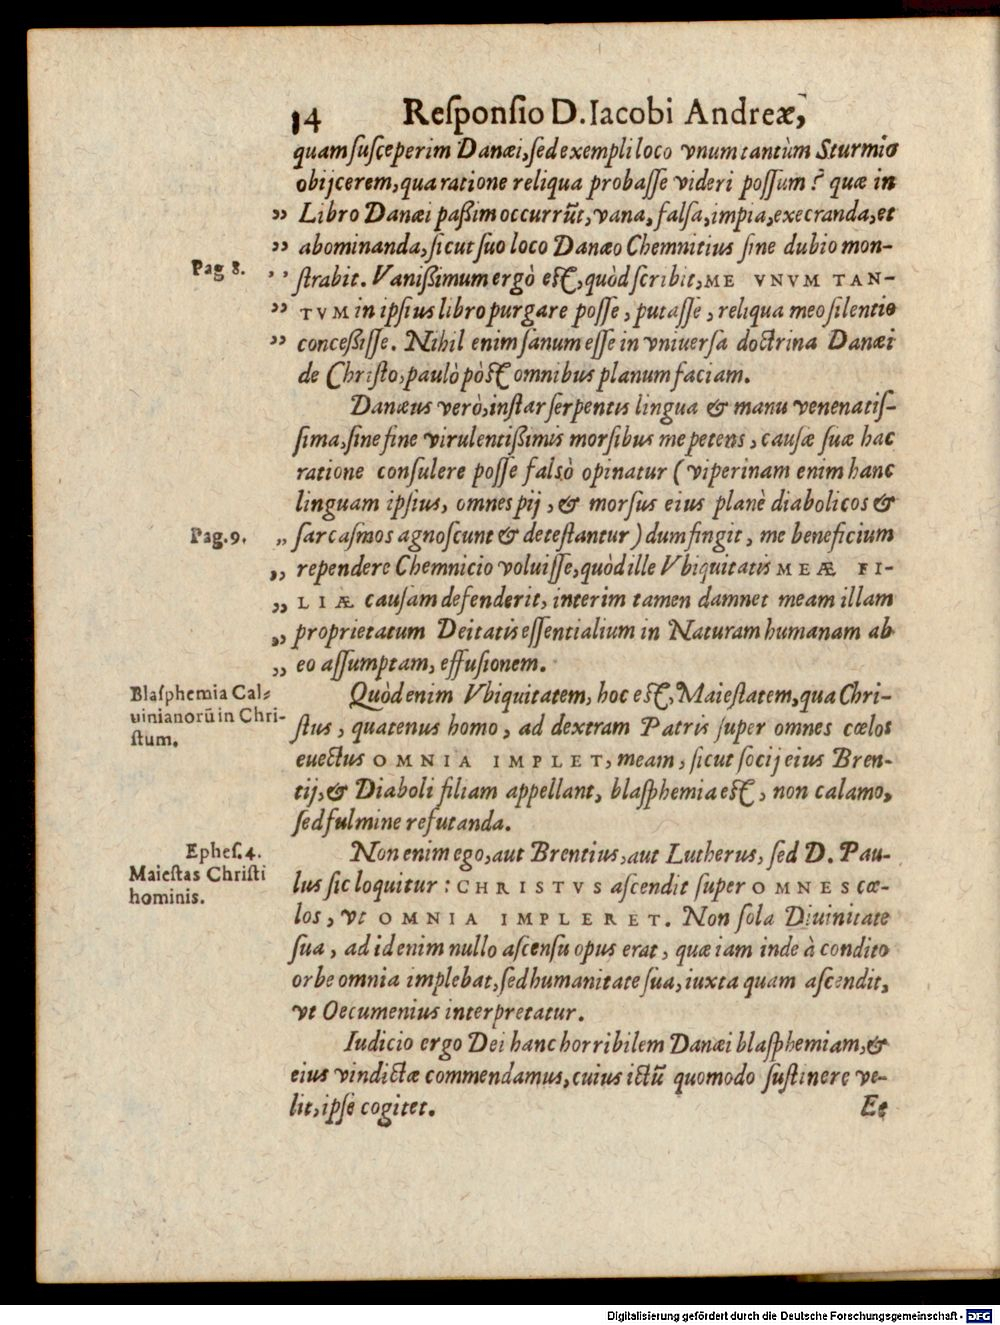 14 Reſponſio D. Iacobi Andreæ,
quam ſuſceperim Danæi, ſed exempli loco vnum tantùm Sturmio
obijcerem, qua ratione reliqua probaſſe videri poſſum? quæ in
„ Libro Danæi paßim occurrũt, vana, falſa, impia, execranda, et
„ abominanda, ſicut ſuo loco Danæo Chemnitius ſine dubio mon-
Pag 8. „ ſtrabit. Vanißimum ergò eſt, quòd ſcribit, ME VNVM TAN-
„ TVM in ipſius libro purgare poſſe, putaſſe, reliqua meo ſilentio
„ conceßiſſe. Nihil enim ſanum eſſe in vniuerſa doctrina Danæi
de Chriſto, paulò pòſt omnibus planum faciam.
Danæus verò, inſtar ſerpentis lingua & manu venenatiſ-
ſima, ſine fine virulentißimis morſibus me petens, cauſæ ſuæ hac
ratione conſulere poſſe falsò opinatur (viperinam enim hanc
linguam ipſius, omnes pij, & morſus eius planè diabolicos &
Pag. 9. „ ſarcaſmos agnoſcunt & deteſtantur) dum fingit, me beneficium
„ rependere Chemnicio voluiſſe, quòd ille Vbiquitatis MEÆ FI-
„ LIÆ cauſam defenderit, interim tamen damnet meam illam
„ proprietatum Deitatis eſſentialium in Naturam humanam ab
„ eo aſſumptam, effuſionem.
Blaſphemia Cal-
uinianorũ in Chri-
ſtum.
Quòd enim Vbiquitatem, hoc eſt, Maieſtatem, qua Chri-
ſtus, quatenus homo, ad dextram Patris ſuper omnes cœlos
euectus OMNIA IMPLET, meam, ſicut ſocij eius Bren-
tij, & Diaboli filiam appellant, blaſphemia eſt, non calamo,
ſed fulmine refutanda.
Epheſ. 4.
Maieſtas Chriſti
hominis.
Non enim ego, aut Brentius, aut Lutherus, ſed D. Pau-
lus ſic loquitur: CHRISTVS aſcendit ſuper OMNES cœ-
los, vt OMNIA IMPLERET. Non ſola Diuinitate
ſua, ad id enim nullo aſcenſu opus erat, quæ iam inde à condito
orbe omnia implebat, ſed humanitate ſua, iuxta quam aſcendit,
vt Oecumenius interpretatur.
Iudicio ergo Dei hanc horribilem Danæi blaſphemiam, &
eius vindictæ commendamus, cuius ictũ quomodo ſuſtinere ve-
lit, ipſe cogitet.
Et
Digitalisierung gefördert durch die Deutsche Forschungsgemeinschaft - DFG